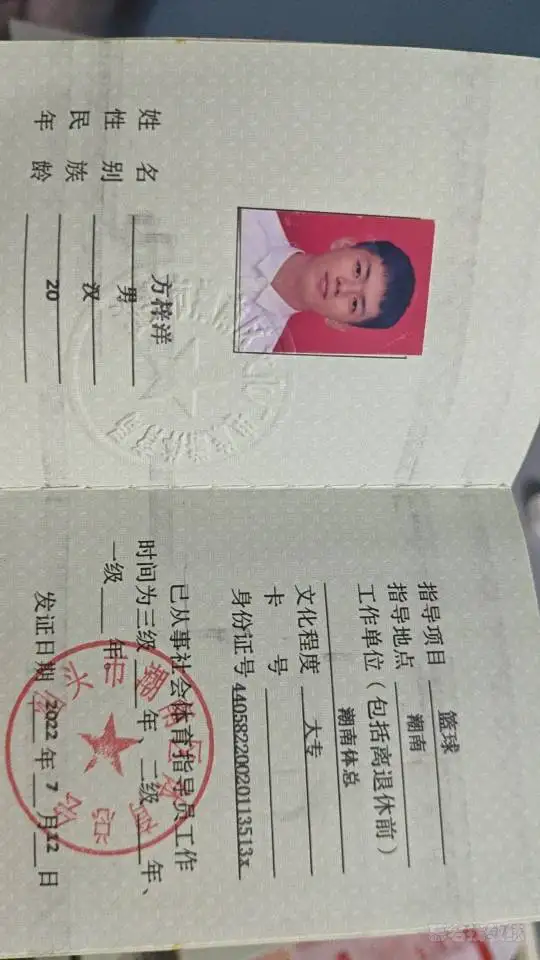 姓名 方梓洋
性别 男
民族 汉
年龄 20
指导项目 篮球
指导地点 潮南
工作单位（包括离退休前）
潮南体总
文化程度 大专
卡号
身份证号 44058220020113513x
已从事社会体育指导员工作
时间为三级 年 二级 年、
一级 年。
发证日期 2022 年 7 月 12 日